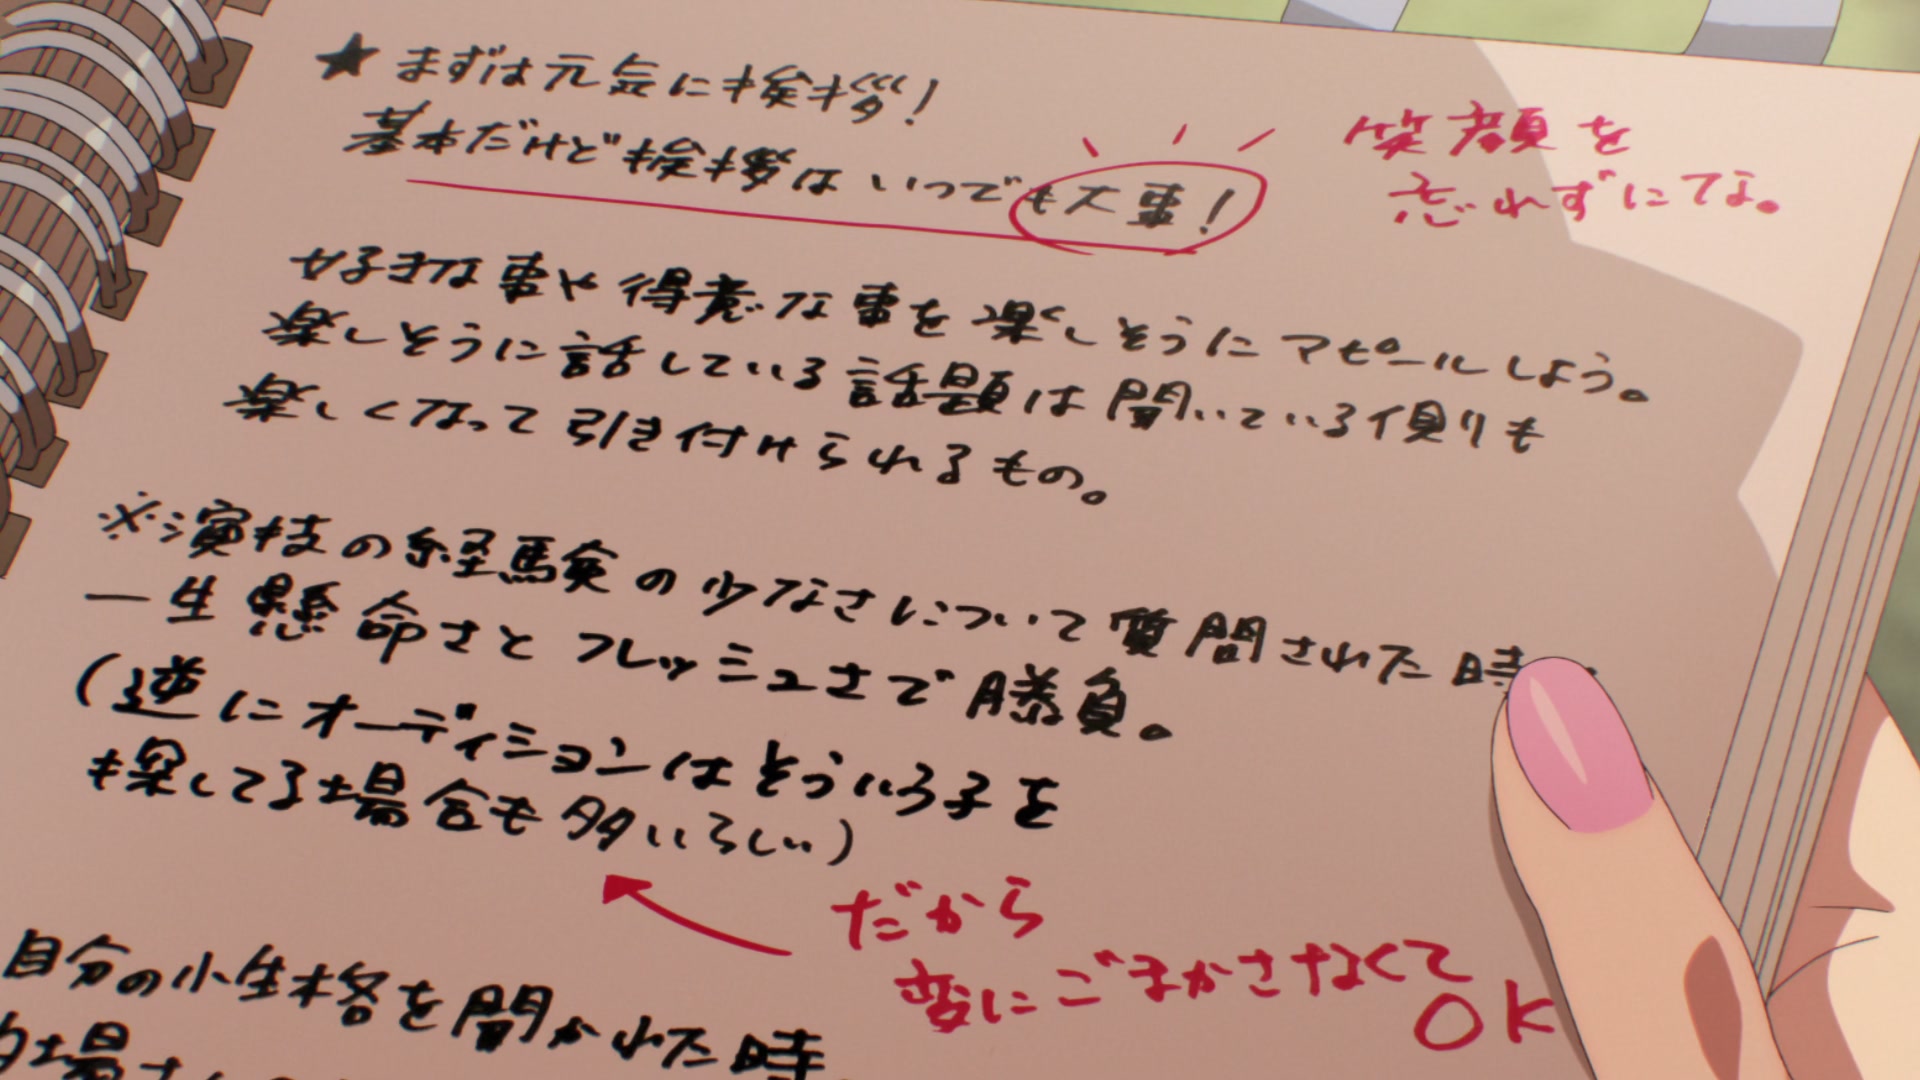 ★まずは元気に挨拶!
基本だけど挨拶はいつでも大事!
笑顔を
忘れずにてな。
好きな事や得意な事を楽しそうにアピールしよう。
楽しそうに話している話題は聞いている側りも
楽しくなって引き付けられるもの。
※演技の経験の少なさについて質問された時
一生懸命さとフレッシュさで勝負。
(逆にオーディションはそういう子を
も探してる場合も多いらしい)
だから
変にごまかさなくて
OK
自分の性格を聞かれた時
場